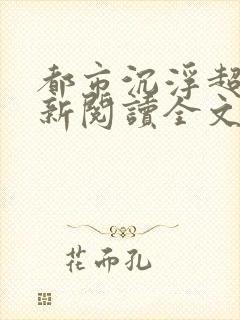 都市沉浮超
新閱讀全文
花而孔